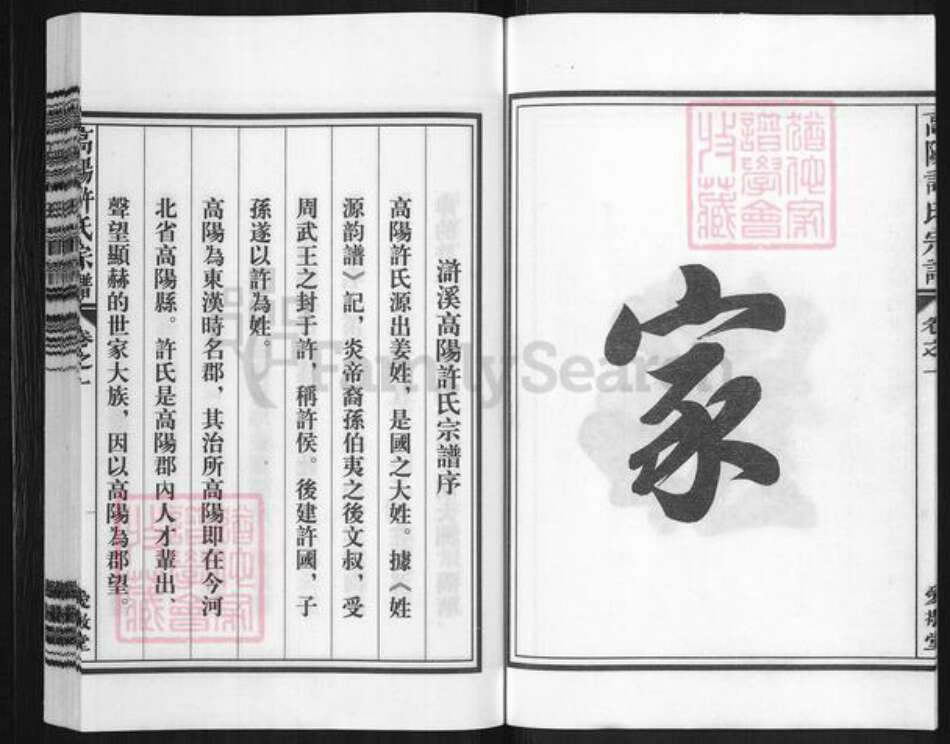 高陽許氏宗譜
卷之一
愛敬堂
家
猶他家
譜學會
收藏
滸溪高陽許氏宗譜序
高陽許氏源出姜姓，是國之大姓。據《姓
源韵譜》記，炎帝裔孫伯夷之後文叔，受
周武王之封于許，稱許侯。後建許國，子
孫遂以許為姓。
高陽為東漢時名郡，其治所高陽即在今河
北省高陽縣。許氏是高陽郡內人才輩出、
聲望顯赫的世家大族，因以高陽為郡望。
猶他家
譜學會
收藏
高陽許氏宗譜
卷之一
愛敬堂
FamilySearch